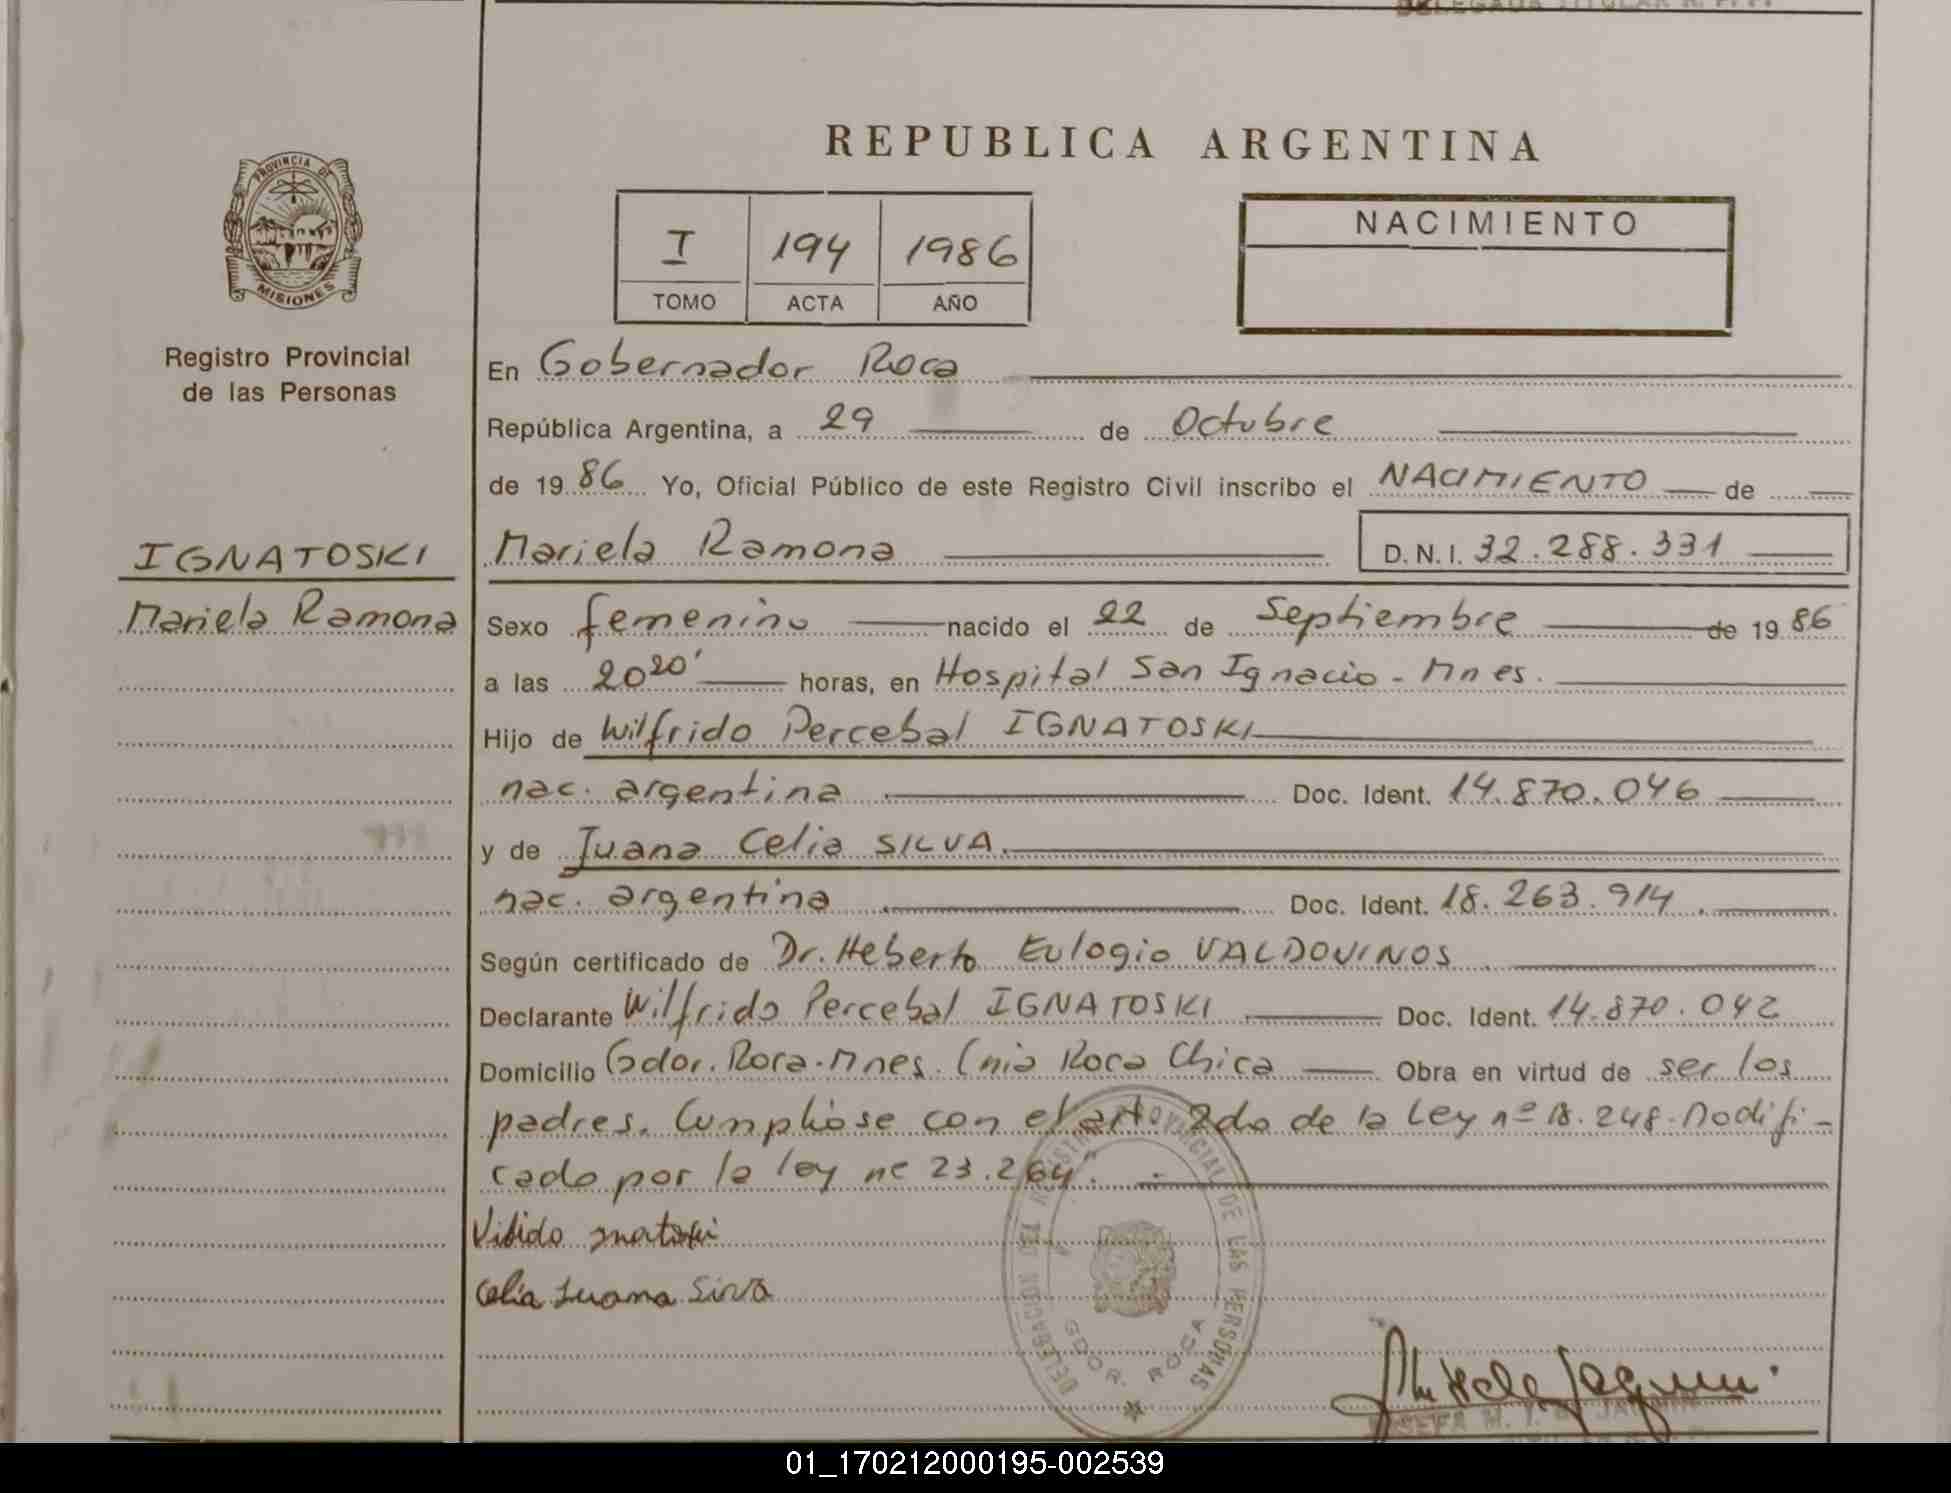 DELEGADA TITULAR R. P. P.
REPUBLICA ARGENTINA
PROVINCIA DE
MISIONES
Registro Provincial
de las Personas
I 194 1986
TOMO ACTA AÑO
NACIMIENTO
En Gobernador Roca
República Argentina, a 29 de Octubre
de 1986 Yo, Oficial Público de este Registro Civil inscribo el NACIMIENTO de
IGNATOSKI
Mariela Ramona
Mariela Ramona D.N.I. 32.288.331
Sexo femenino nacido el 22 de Septiembre de 1986
a las 20 20' horas, en Hospital San Ignacio - Mnes.
Hijo de Wilfrido Percebal IGNATOSKI
nac. argentina Doc. Ident. 14.870.046
y de Juana Celia SILVA.
nac. argentina Doc. Ident. 18.263.914.
Según certificado de Dr. Heberto Eulogio VALDOVINOS
Declarante Wilfrido Percebal IGNATOSKI Doc. Ident. 14.870.042
Domicilio Gdor. Roca - Mnes. Cnia Roca Chica Obra en virtud de ser los
padres. Cumpliose con el art. 2do de la Ley nº 18.248. Modifi-
cado por la ley nº 23.264".
Celia Juana Silva
DELEGACION DEL REGISTRO PROVINCIAL DE LAS PERSONAS
GDOR. ROCA
01_170212000195-002539